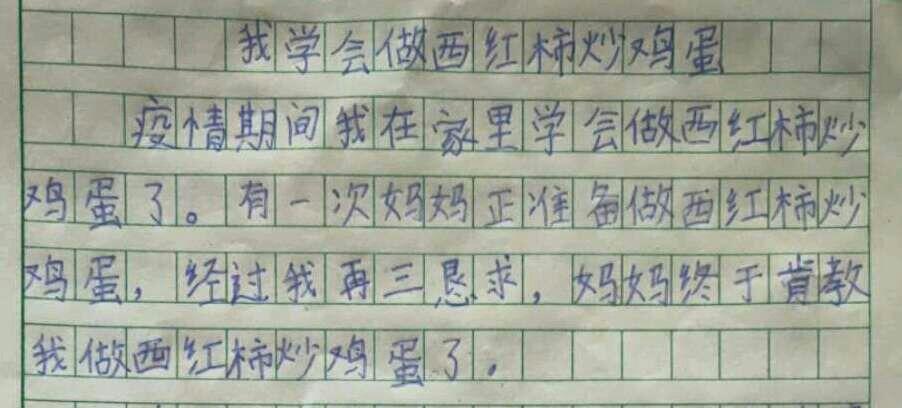 我学会做西红柿炒鸡蛋
疫情期间我在家里学会做西红柿炒
鸡蛋了。有一次妈妈正准备做西红柿炒
鸡蛋，经过我再三恳求，妈妈终于肯教
我做西红柿炒鸡蛋了。